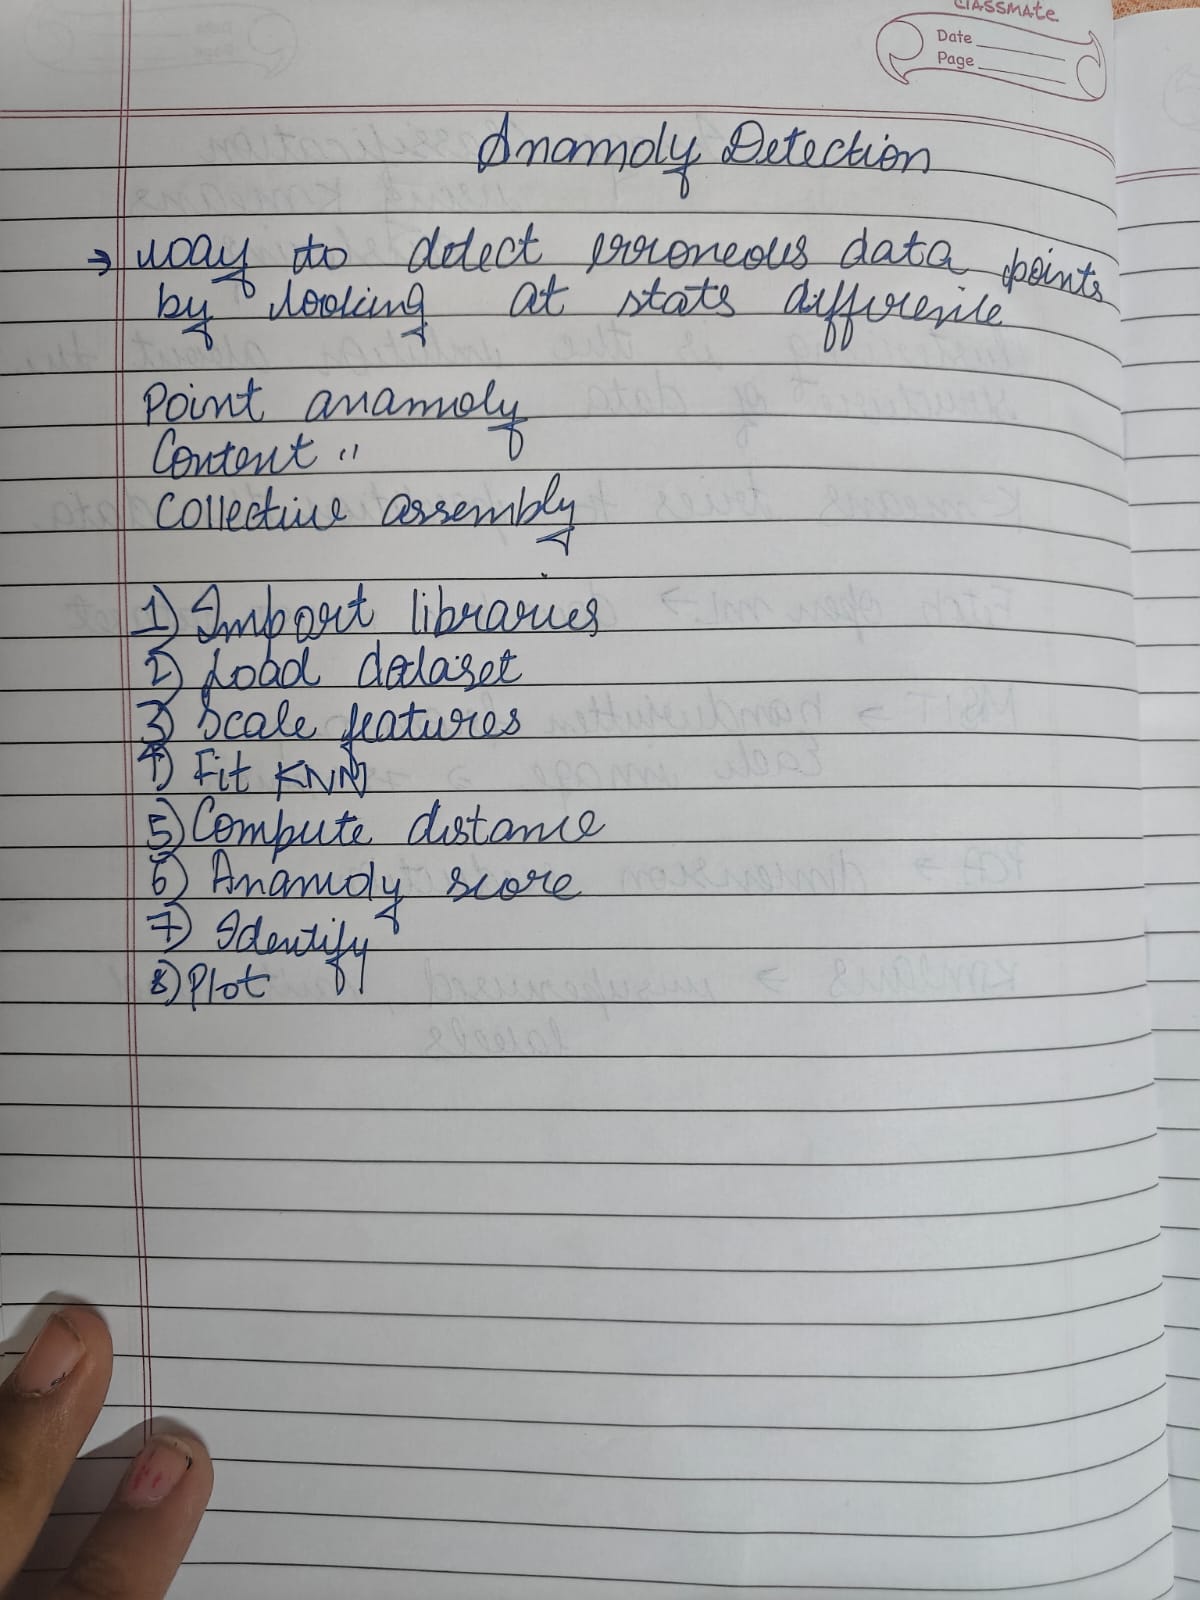 classmate
Date
Page
Anamoly Detection
→ way to detect erroneous data points
by looking at stats difference
Point anamoly
Content "
Collective assembly
1) Import libraries
2) Load dataset
3) Scale features
4) Fit KNN
5) Compute distance
6) Anamoly score
7) Identify
8) Plot